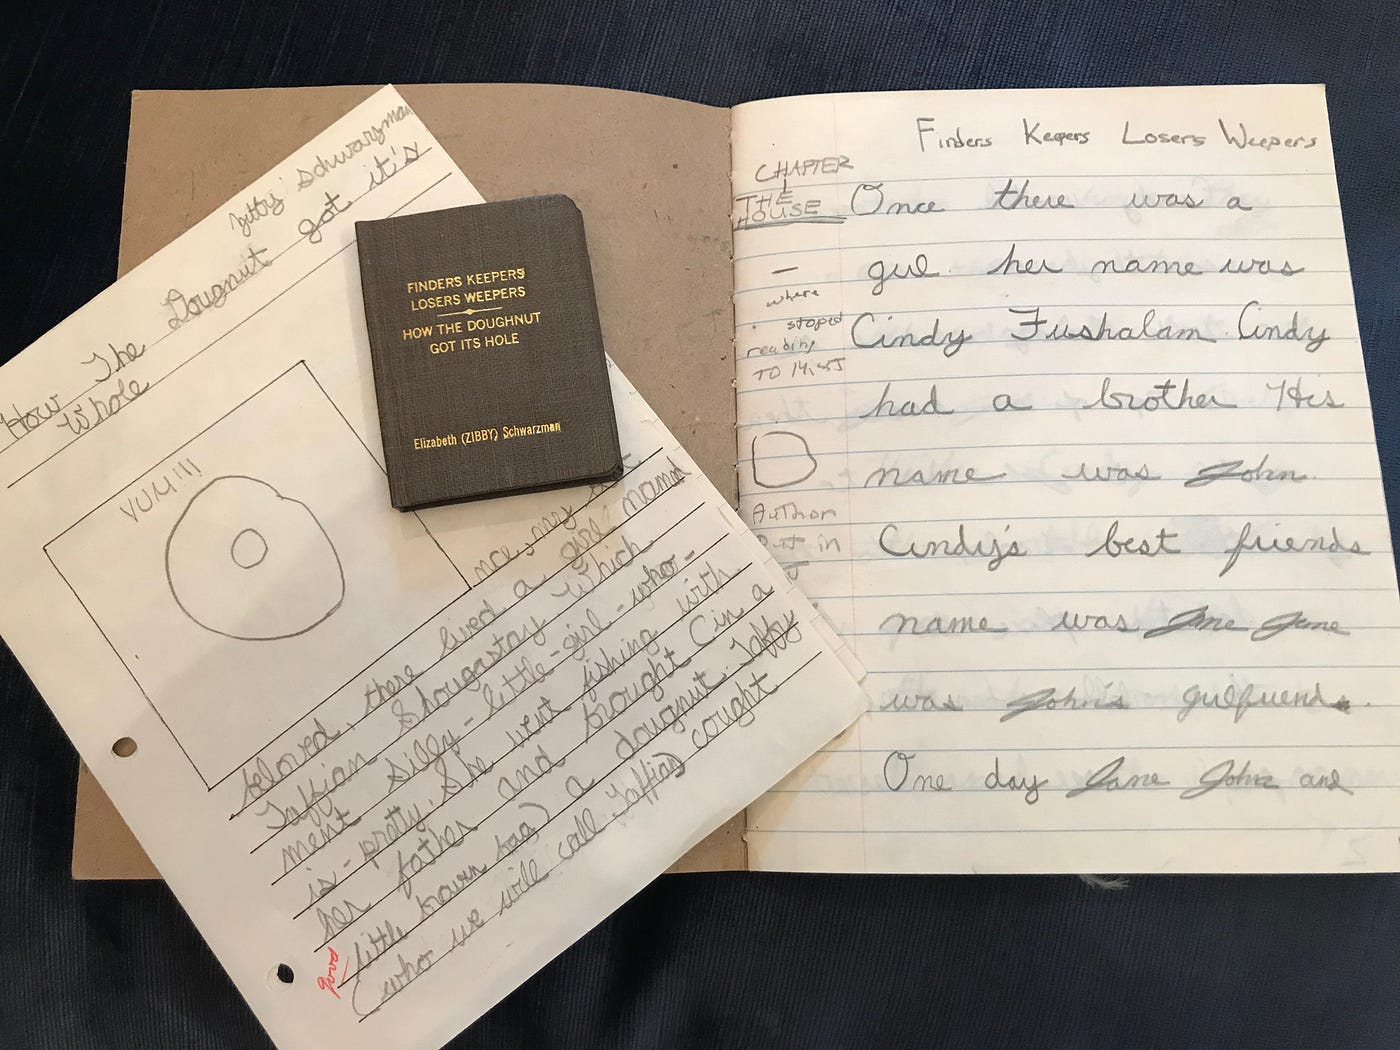 Zibby Schwarzman
How The Dougnut got it's
Whole
YUM!!!
beloved, there lived a girl named
Taffian Shougastory which
ment silly-little-girl-who-
is-pretty. She went fishing with
her father and brought (in a
little brown bag) a dougnut. Taffy
(who we will call Taffian) cought
good
FINDERS KEEPERS
LOSERS WEEPERS
HOW THE DOUGHNUT
GOT ITS HOLE
Elizabeth (ZIBBY) Schwarzman
Finders Keepers Losers Weepers
CHAPTER
1
THE
HOUSE
—
where
stoped
reading
TO 14,45
Author
Put in
Once there was a
girl. her name was
Cindy Fushalam. Cindy
had a brother His
name was John.
Cindy's best friends
name was Jane Jane
was John's girlfriend.
One day Jane John and